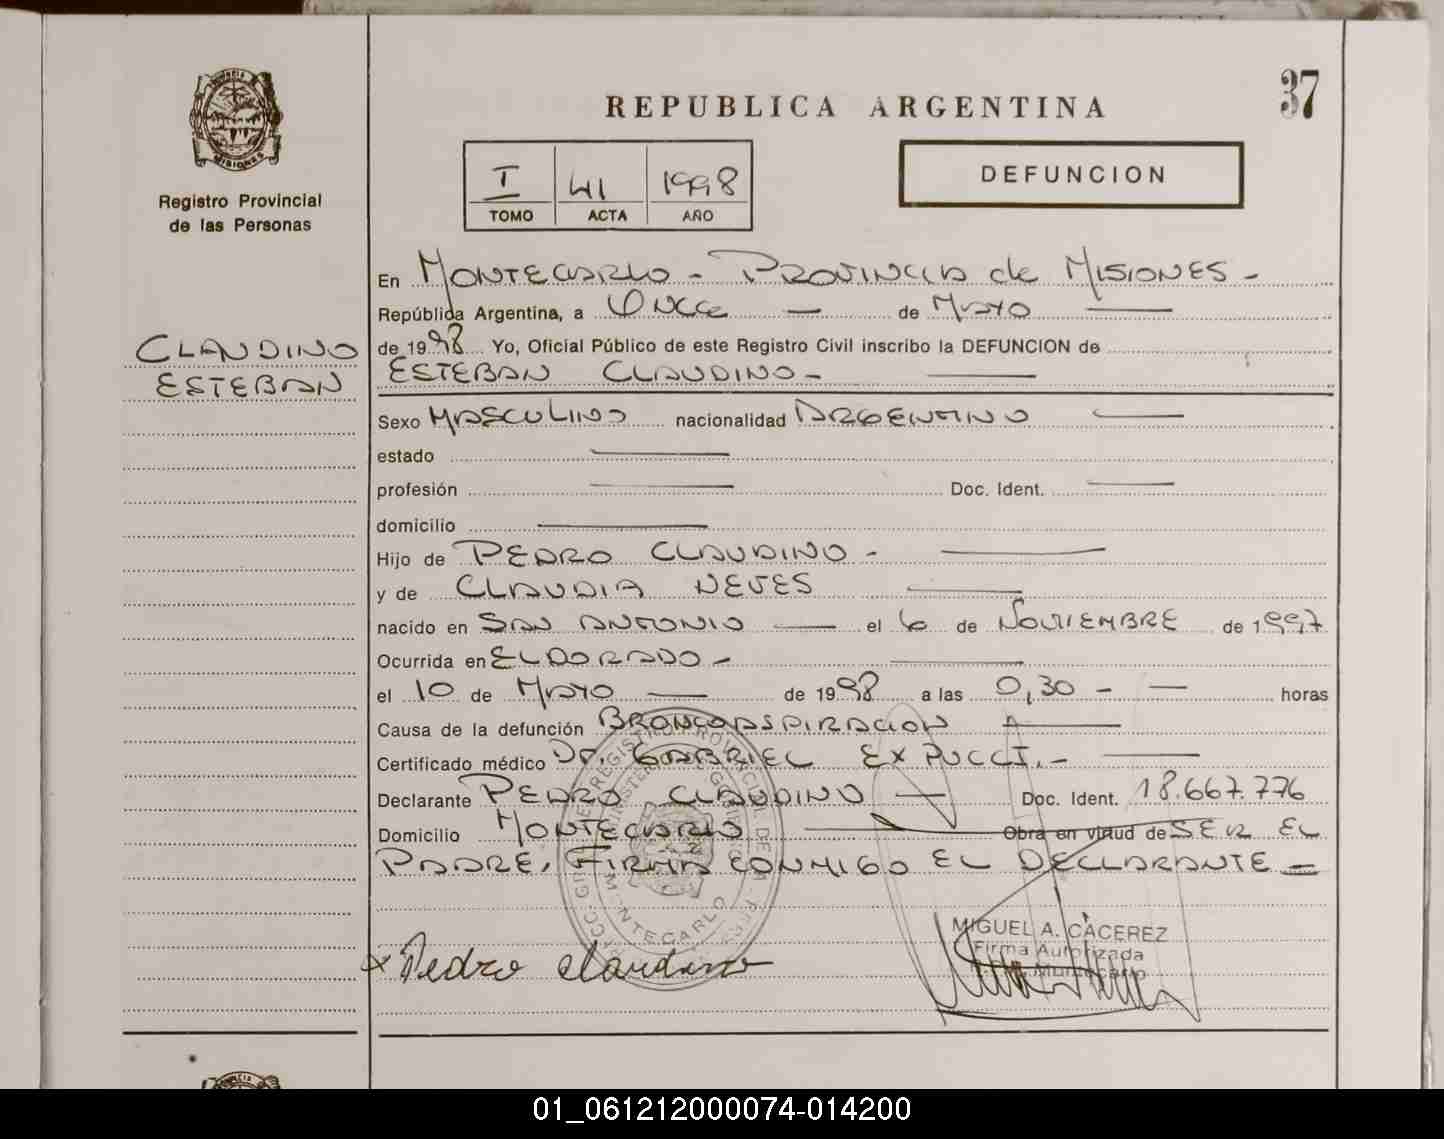 37
REPUBLICA ARGENTINA
PROVINCIA DE
MISIONES
I 41 1998
TOMO ACTA AÑO
DEFUNCION
Registro Provincial
de las Personas
CLAUDINO
ESTEBAN
En MONTECARLO - PROVINCIA de MISIONES -
República Argentina, a ONCE — de MAYO —
de 1998 Yo, Oficial Público de este Registro Civil inscribo la DEFUNCION de
ESTEBAN CLAUDINO - —
Sexo MASCULINO nacionalidad ARGENTINO —
estado —
profesión — Doc. Ident. —
domicilio —
Hijo de PEDRO CLAUDINO - —
y de CLAUDIA NEVES —
nacido en SAN ANTONIO — el 6 de NOVIEMBRE de 1997
Ocurrida en ELDORADO - —
el 10 de MAYO — de 1998 a las 0,30 - — horas
Causa de la defunción BRONCOASPIRACION —
Certificado médico Dr. GABRIEL EX PUCCI. - —
Declarante PEDRO CLAUDINO — Doc. Ident. 18.667.776
Domicilio MONTECARLO — Obra en virtud de SER EL
PADRE, FIRMA CONMIGO EL DECLARANTE —
REGISTRO PROVINCIAL DE LAS
MINISTERIO DE GOBIERNO
MONTECARLO
MIGUEL A. CACEREZ
Firma Autorizada
Montecarlo
x Pedro Claudino
01_061212000074-014200